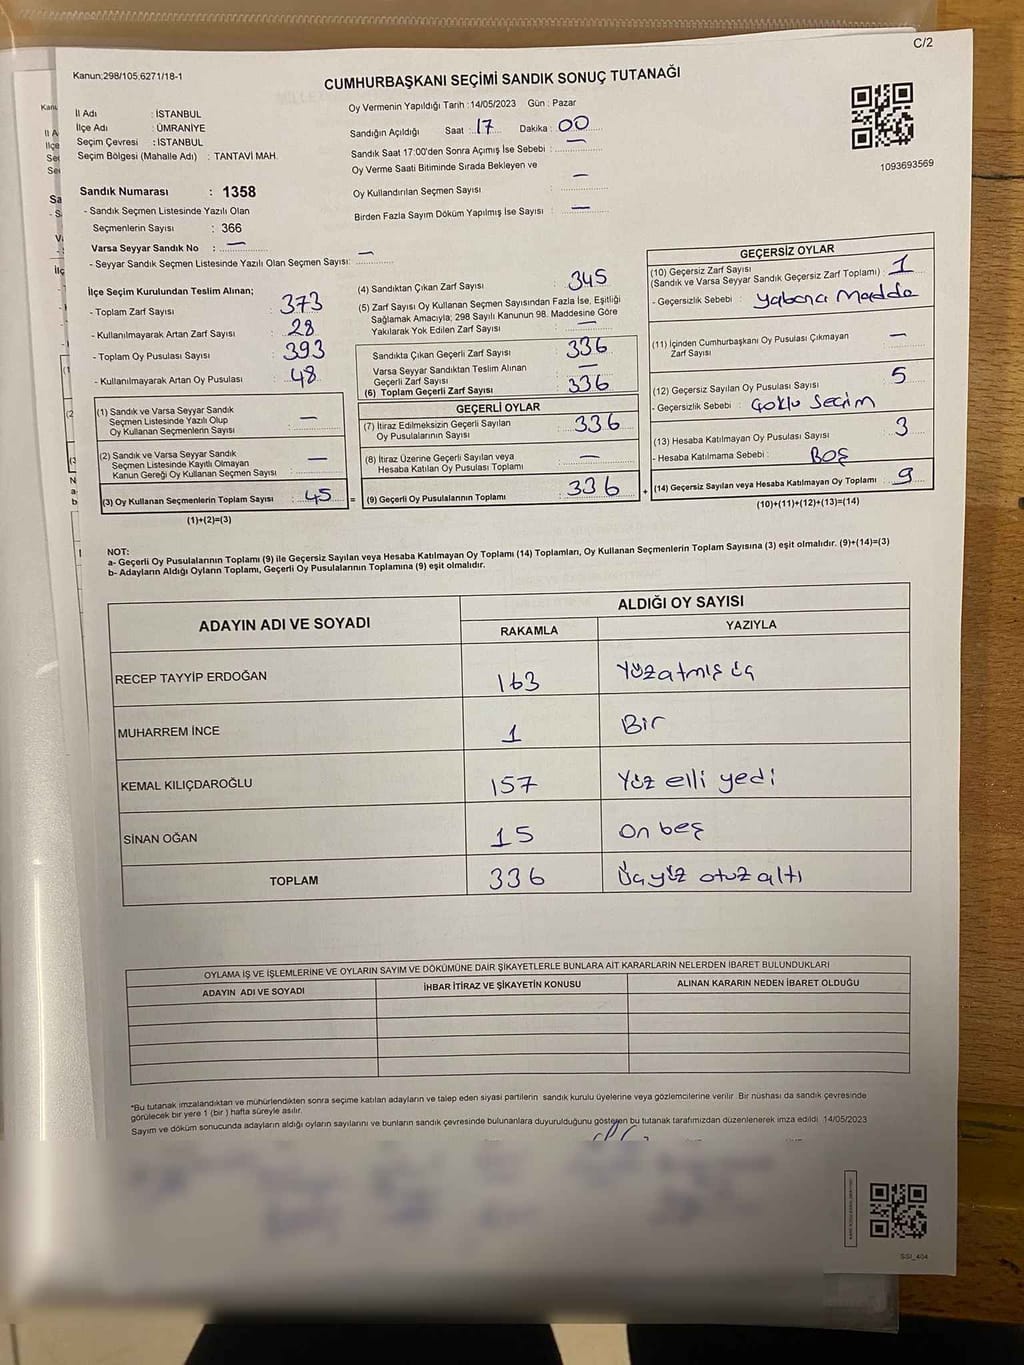 C/2
Kanun;298/105,6271/18-1
CUMHURBAŞKANI SEÇİMİ SANDIK SONUÇ TUTANAĞI
İl Adı : İSTANBUL
İlçe Adı : ÜMRANİYE
Seçim Çevresi : İSTANBUL
Seçim Bölgesi (Mahalle Adı) : TANTAVİ MAH.
Oy Vermenin Yapıldığı Tarih :14/05/2023 Gün : Pazar
Sandığın Açıldığı Saat : 17 Dakika : 00
Sandık Saat 17:00'den Sonra Açımış İse Sebebi : —
Oy Verme Saati Bitiminde Sırada Bekleyen ve
Oy Kullandırılan Seçmen Sayısı : —
Birden Fazla Sayım Döküm Yapılmış İse Sayısı : —
1093693569
Sandık Numarası : 1358
- Sandık Seçmen Listesinde Yazılı Olan
Seçmenlerin Sayısı : 366
Varsa Seyyar Sandık No : —
- Seyyar Sandık Seçmen Listesinde Yazılı Olan Seçmen Sayısı: —
İlçe Seçim Kurulundan Teslim Alınan;
- Toplam Zarf Sayısı : 373
- Kullanılmayarak Artan Zarf Sayısı : 28
- Toplam Oy Pusulası Sayısı : 393
- Kullanılmayarak Artan Oy Pusulası : 48
(1) Sandık ve Varsa Seyyar Sandık
Seçmen Listesinde Yazılı Olup
Oy Kullanan Seçmenlerin Sayısı —
(2) Sandık ve Varsa Seyyar Sandık
Seçmen Listesinde Kayıtlı Olmayan
Kanun Gereği Oy Kullanan Seçmen Sayısı —
(3) Oy Kullanan Seçmenlerin Toplam Sayısı : 45 =
(1)+(2)=(3)
(4) Sandıktan Çıkan Zarf Sayısı : 345
(5) Zarf Sayısı Oy Kullanan Seçmen Sayısından Fazla İse, Eşitliği
Sağlamak Amacıyla; 298 Sayılı Kanunun 98. Maddesine Göre
Yakılarak Yok Edilen Zarf Sayısı : —
Sandıkta Çıkan Geçerli Zarf Sayısı : 336
Varsa Seyyar Sandıktan Teslim Alınan
Geçerli Zarf Sayısı : —
(6) Toplam Geçerli Zarf Sayısı : 336
GEÇERLİ OYLAR
(7) İtiraz Edilmeksizin Geçerli Sayılan
Oy Pusulalarının Sayısı : 336
(8) İtiraz Üzerine Geçerli Sayılan veya
Hesaba Katılan Oy Pusulası Toplamı : —
(9) Geçerli Oy Pusulalarının Toplamı : 336 +
GEÇERSİZ OYLAR
(10) Geçersiz Zarf Sayısı
(Sandık ve Varsa Seyyar Sandık Geçersiz Zarf Toplamı) : 1
- Geçersizlik Sebebi : Yabancı Madde
(11) İçinden Cumhurbaşkanı Oy Pusulası Çıkmayan
Zarf Sayısı : —
(12) Geçersiz Sayılan Oy Pusulası Sayısı : 5
- Geçersizlik Sebebi : Çoklu Seçim
(13) Hesaba Katılmayan Oy Pusulası Sayısı : 3
- Hesaba Katılmama Sebebi : Boş
(14) Geçersiz Sayılan veya Hesaba Katılmayan Oy Toplamı : 9
(10)+(11)+(12)+(13)=(14)
NOT:
a- Geçerli Oy Pusulalarının Toplamı (9) ile Geçersiz Sayılan veya Hesaba Katılmayan Oy Toplamı (14) Toplamları, Oy Kullanan Seçmenlerin Toplam Sayısına (3) eşit olmalıdır. (9)+(14)=(3)
b- Adayların Aldığı Oyların Toplamı, Geçerli Oy Pusulalarının Toplamına (9) eşit olmalıdır.
ADAYIN ADI VE SOYADI ALDIĞI OY SAYISI
RAKAMLA YAZIYLA
RECEP TAYYİP ERDOĞAN 163 Yüzatmış üç
MUHARREM İNCE 1 Bir
KEMAL KILIÇDAROĞLU 157 Yüz elli yedi
SİNAN OĞAN 15 On beş
TOPLAM 336 Üçyüz otuz altı
OYLAMA İŞ VE İŞLEMLERİNE VE OYLARIN SAYIM VE DÖKÜMÜNE DAİR ŞİKAYETLERLE BUNLARA AİT KARARLARIN NELERDEN İBARET BULUNDUKLARI
ADAYIN ADI VE SOYADI İHBAR İTİRAZ VE ŞİKAYETİN KONUSU ALINAN KARARIN NEDEN İBARET OLDUĞU
*Bu tutanak imzalandıktan ve mühürlendikten sonra seçime katılan adayların ve talep eden siyasi partilerin sandık kurulu üyelerine veya gözlemcilerine verilir. Bir nüshası da sandık çevresinde
görülecek bir yere 1 (bir ) hafta süreyle asılır.
Sayım ve döküm sonucunda adayların aldığı oyların sayılarını ve bunların sandık çevresinde bulunanlara duyurulduğunu gösteren bu tutanak tarafımızdan düzenlenerek imza edildi 14/05/2023
SSI_404